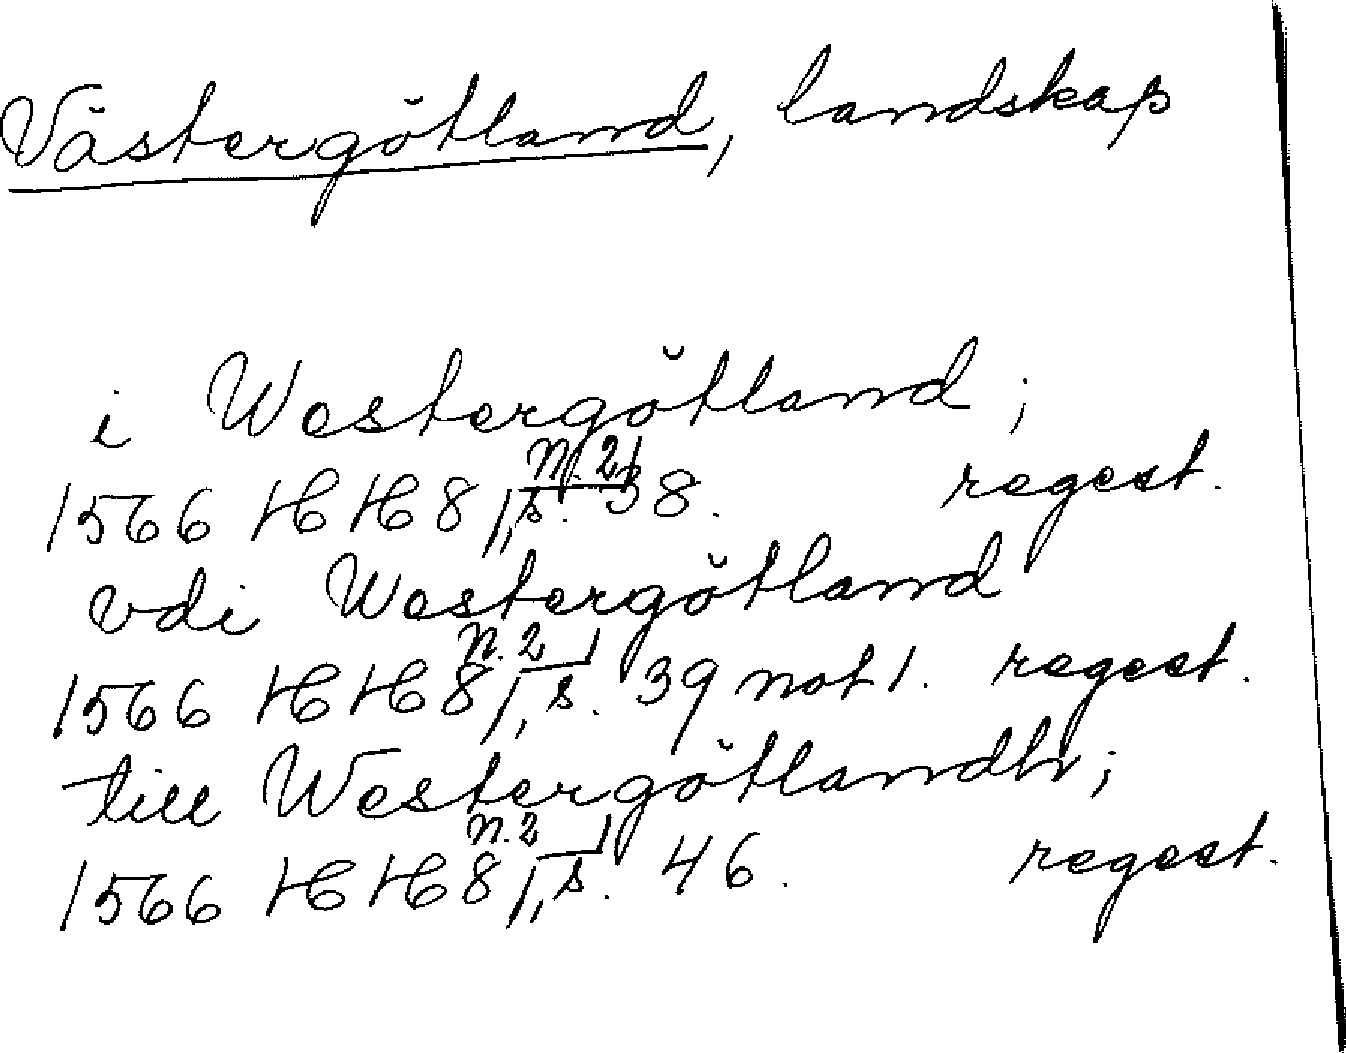 Västergötland, landskap
i Westergötland;
1566 HH 8 n. 2, s. 38. regest.
vdi Westergötland
1566 HH 8 n. 2, s. 39 not 1. regest.
till Westergötlandh;
1566 HH 8 n. 2, s. 46. regest.